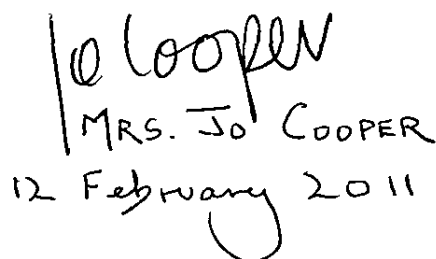 Jo Cooper
MRS. JO COOPER
12 February 2011